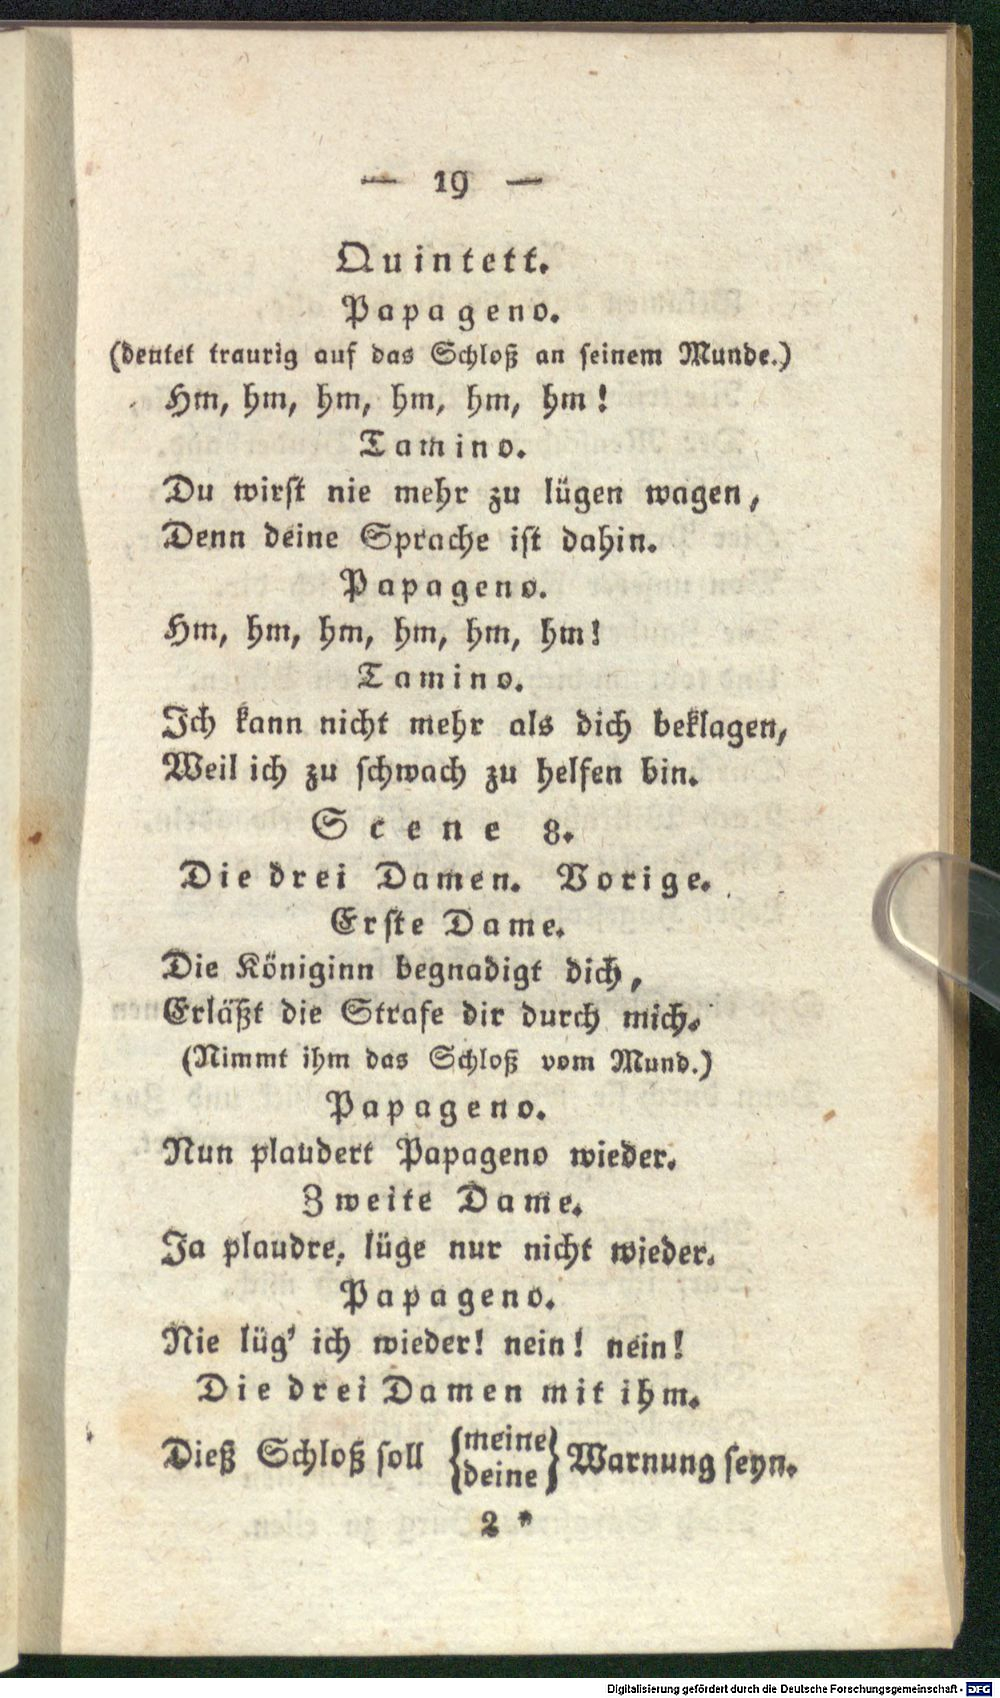 — 19 —
Quintett.
Papageno.
(deutet traurig auf das Schloß an seinem Munde.)
Hm, hm, hm, hm, hm, hm!
Tamino.
Du wirst nie mehr zu lügen wagen,
Denn deine Sprache ist dahin.
Papageno.
Hm, hm, hm, hm, hm, hm!
Tamino.
Ich kann nicht mehr als dich beklagen,
Weil ich zu schwach zu helfen bin.
Scene 8.
Die drei Damen. Vorige.
Erste Dame.
Die Königinn begnadigt dich,
Erläßt die Strafe dir durch mich.
(Nimmt ihm das Schloß vom Mund.)
Papageno.
Nun plaudert Papageno wieder.
Zweite Dame.
Ja plaudre, lüge nur nicht wieder.
Papageno.
Nie lüg' ich wieder! nein! nein!
Die drei Damen mit ihm.
Dieß Schloß soll {meine / deine} Warnung seyn.
2 *
Digitalisierung gefördert durch die Deutsche Forschungsgemeinschaft - DFG